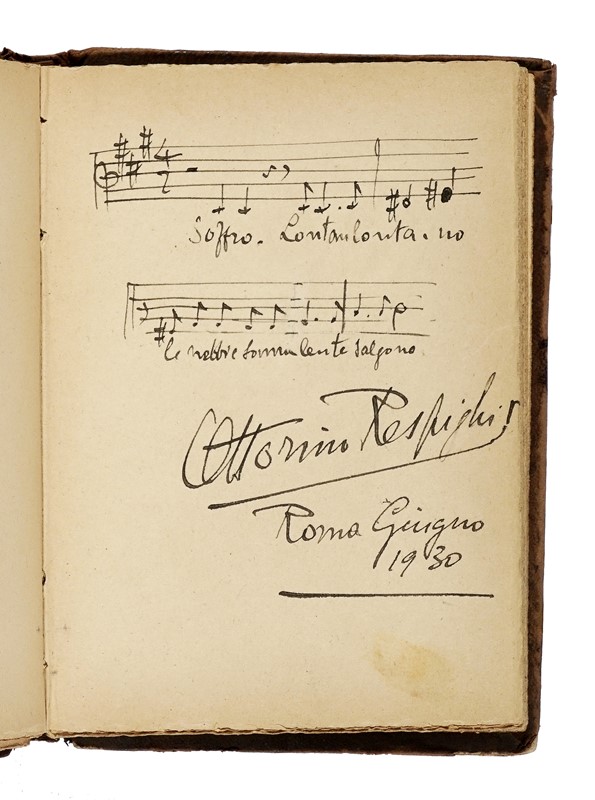 Soffro. Lontan lonta . no
le nebbie sonnolente salgono
Ottorino Respighi
Roma Giugno
1930